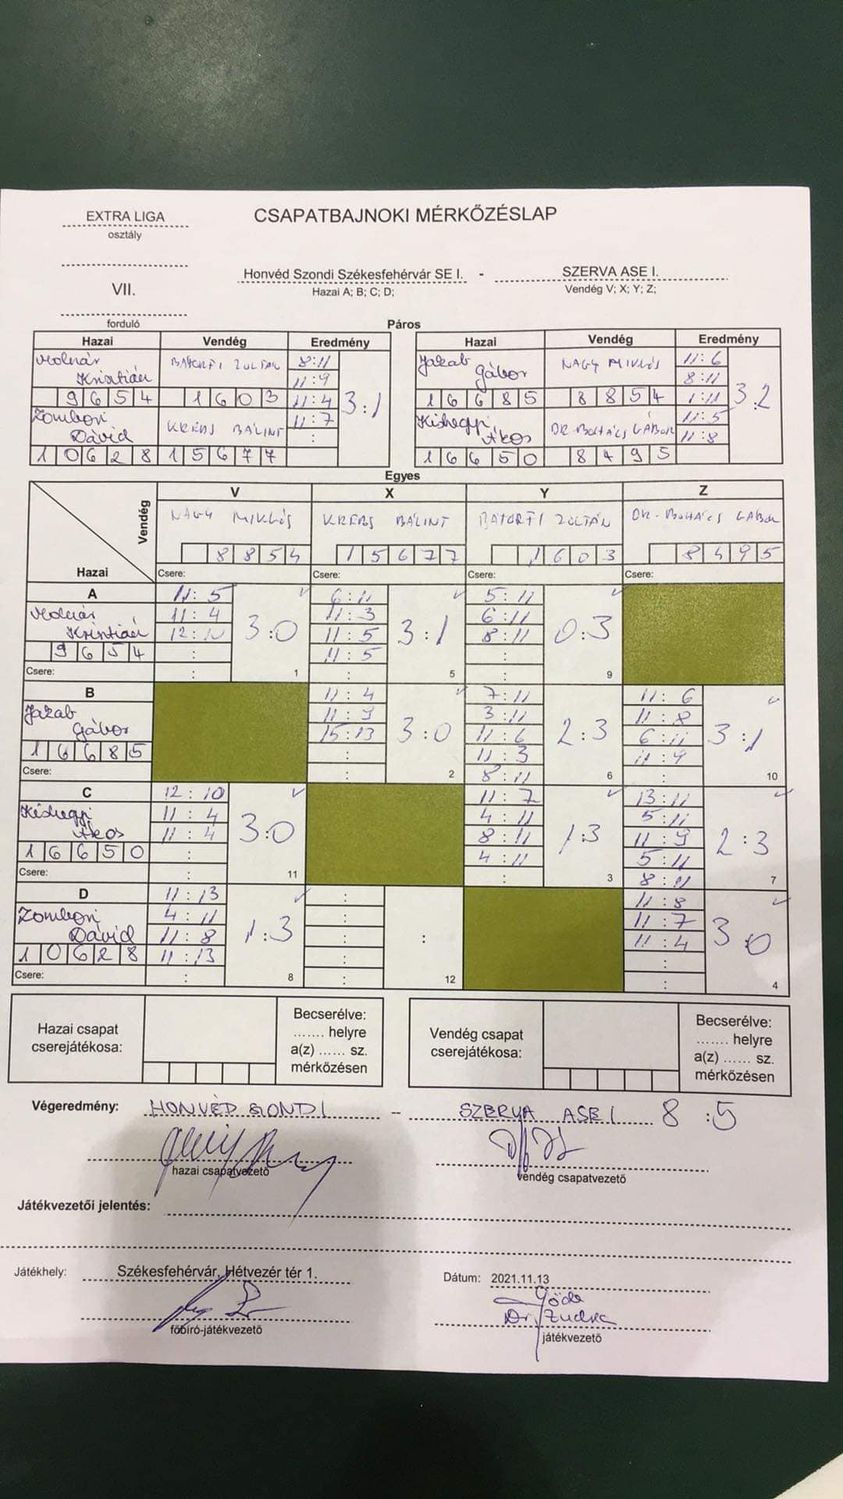 EXTRA LIGA
osztály
CSAPATBAJNOKI MÉRKŐZÉSLAP
VII.
forduló
Honvéd Szondi Székesfehérvár SE I. - SZERVA ASE I.
Hazai A; B; C; D; Vendég V; X; Y; Z;
Páros
Hazai Vendég Eredmény
Molnár Krisztián
9654
BÁTORFI ZOLTÁN
1603
Zombori Dávid
10628
KREBS BÁLINT
15677
8:11
11:9
11:4
11:7
:
3:1
Hazai Vendég Eredmény
Jakab Gábor
16685
NAGY MIKLÓS
8854
Kishegyi Ákos
16650
DR BOHÁCS GÁBOR
8495
11:6
8:11
1:11
11:5
11:8
3:2
Egyes
Vendég
Hazai
V X Y Z
NAGY MIKLÓS KREBS BÁLINT BÁTORFI ZOLTÁN DR. BOHÁCS GÁBOR
8854 15677 1603 8495
Csere: Csere: Csere: Csere:
A
Molnár
Krisztián
9654
Csere:
11:5
11:4
12:10
:
:
3:0
1
6:11
11:3
11:5
11:5
:
3:1
5
5:11
6:11
8:11
:
:
0:3
9
B
Jakab
Gábor
16685
Csere:
11:4
11:9
15:13
:
:
3:0
2
7:11
3:11
11:6
11:3
8:11
2:3
6
11:6
11:8
6:11
11:4
:
3:1
10
C
Kishegyi
Ákos
16650
Csere:
12:10
11:4
11:4
:
:
3:0
11
11:7
4:11
8:11
4:11
:
1:3
3
13:11
5:11
11:9
5:11
8:11
2:3
7
D
Zombori
Dávid
10628
Csere:
11:13
4:11
11:8
11:13
:
1:3
8
:
:
:
:
:
:
12
11:8
11:7
11:4
:
:
3:0
4
Hazai csapat
cserejátékosa:
Becserélve:
....... helyre
a(z) ...... sz.
mérkőzésen
Vendég csapat
cserejátékosa:
Becserélve:
....... helyre
a(z) ...... sz.
mérkőzésen
Végeredmény: HONVÉD SZONDI - SZERVA ASE I 8:5
hazai csapatvezető vendég csapatvezető
Játékvezetői jelentés:
Játékhely: Székesfehérvár, Hétvezér tér 1. Dátum: 2021.11.13
főbíró-játékvezető játékvezető